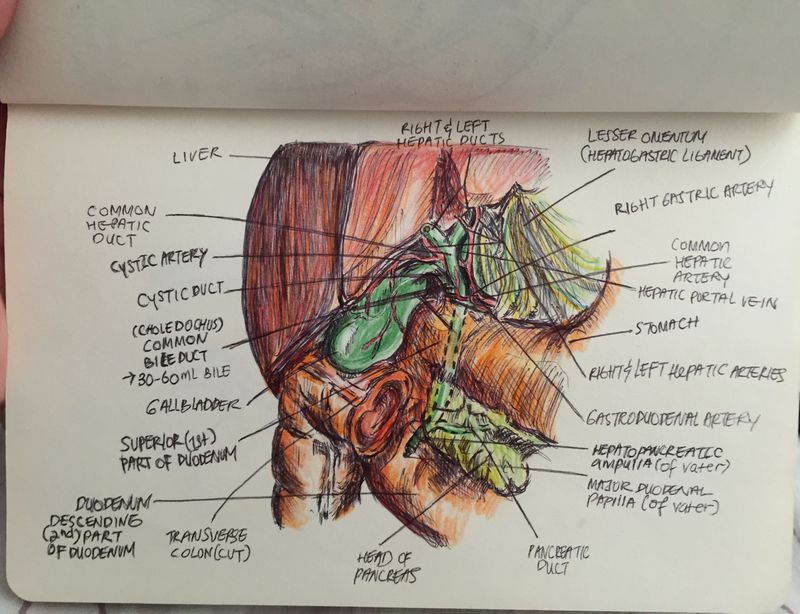 RIGHT & LEFT
HEPATIC DUCTS
LIVER
COMMON
HEPATIC
DUCT
CYSTIC ARTERY
CYSTIC DUCT
(CHOLEDOCHUS)
COMMON
BILE DUCT
→30-60ML BILE
GALLBLADDER
SUPERIOR (1st)
PART OF DUODENUM
DUODENUM
DESCENDING
(2nd) PART
OF DUODENUM
TRANSVERSE
COLON (CUT)
HEAD OF
PANCREAS
PANCREATIC
DUCT
LESSER OMENTUM
(HEPATOGASTRIC LIGAMENT)
RIGHT GASTRIC ARTERY
COMMON
HEPATIC
ARTERY
HEPATIC PORTAL VEIN
STOMACH
RIGHT & LEFT HEPATIC ARTERIES
GASTRODUOTENAL ARTERY
HEPATOPANCREATIC
AMPULLA (of vater)
MAJOR DUODENAL
PAPILLA (of vater)